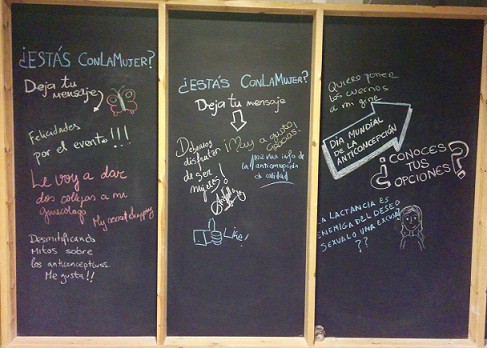 ¿ESTÁS CONLAMUJER?
Deja tu
mensaje
Felicidades
por el evento!!!
Le voy a dar
dos collejas a mi
ginecologo
Desmitificando
Mitos sobre
los anticonceptivos.
Me gusta!!
¿ESTÁS CONLAMUJER?
Deja tu mensaje
Dejarnos
disfrutar
de ser
mujeres!
¡Muy a gusto
GRACIAS!
info de
la anticoncepción
de calidad
Like!
Quiero poner
los cuernos
a mi gine
DÍA MUNDIAL
DE LA
ANTICONCEPCIÓN
¿CONOCES
TUS
OPCIONES?
LA LACTANCIA ES
ENEMIGA DEL DESEO
SEXUAL O UNA EXCUSA
??